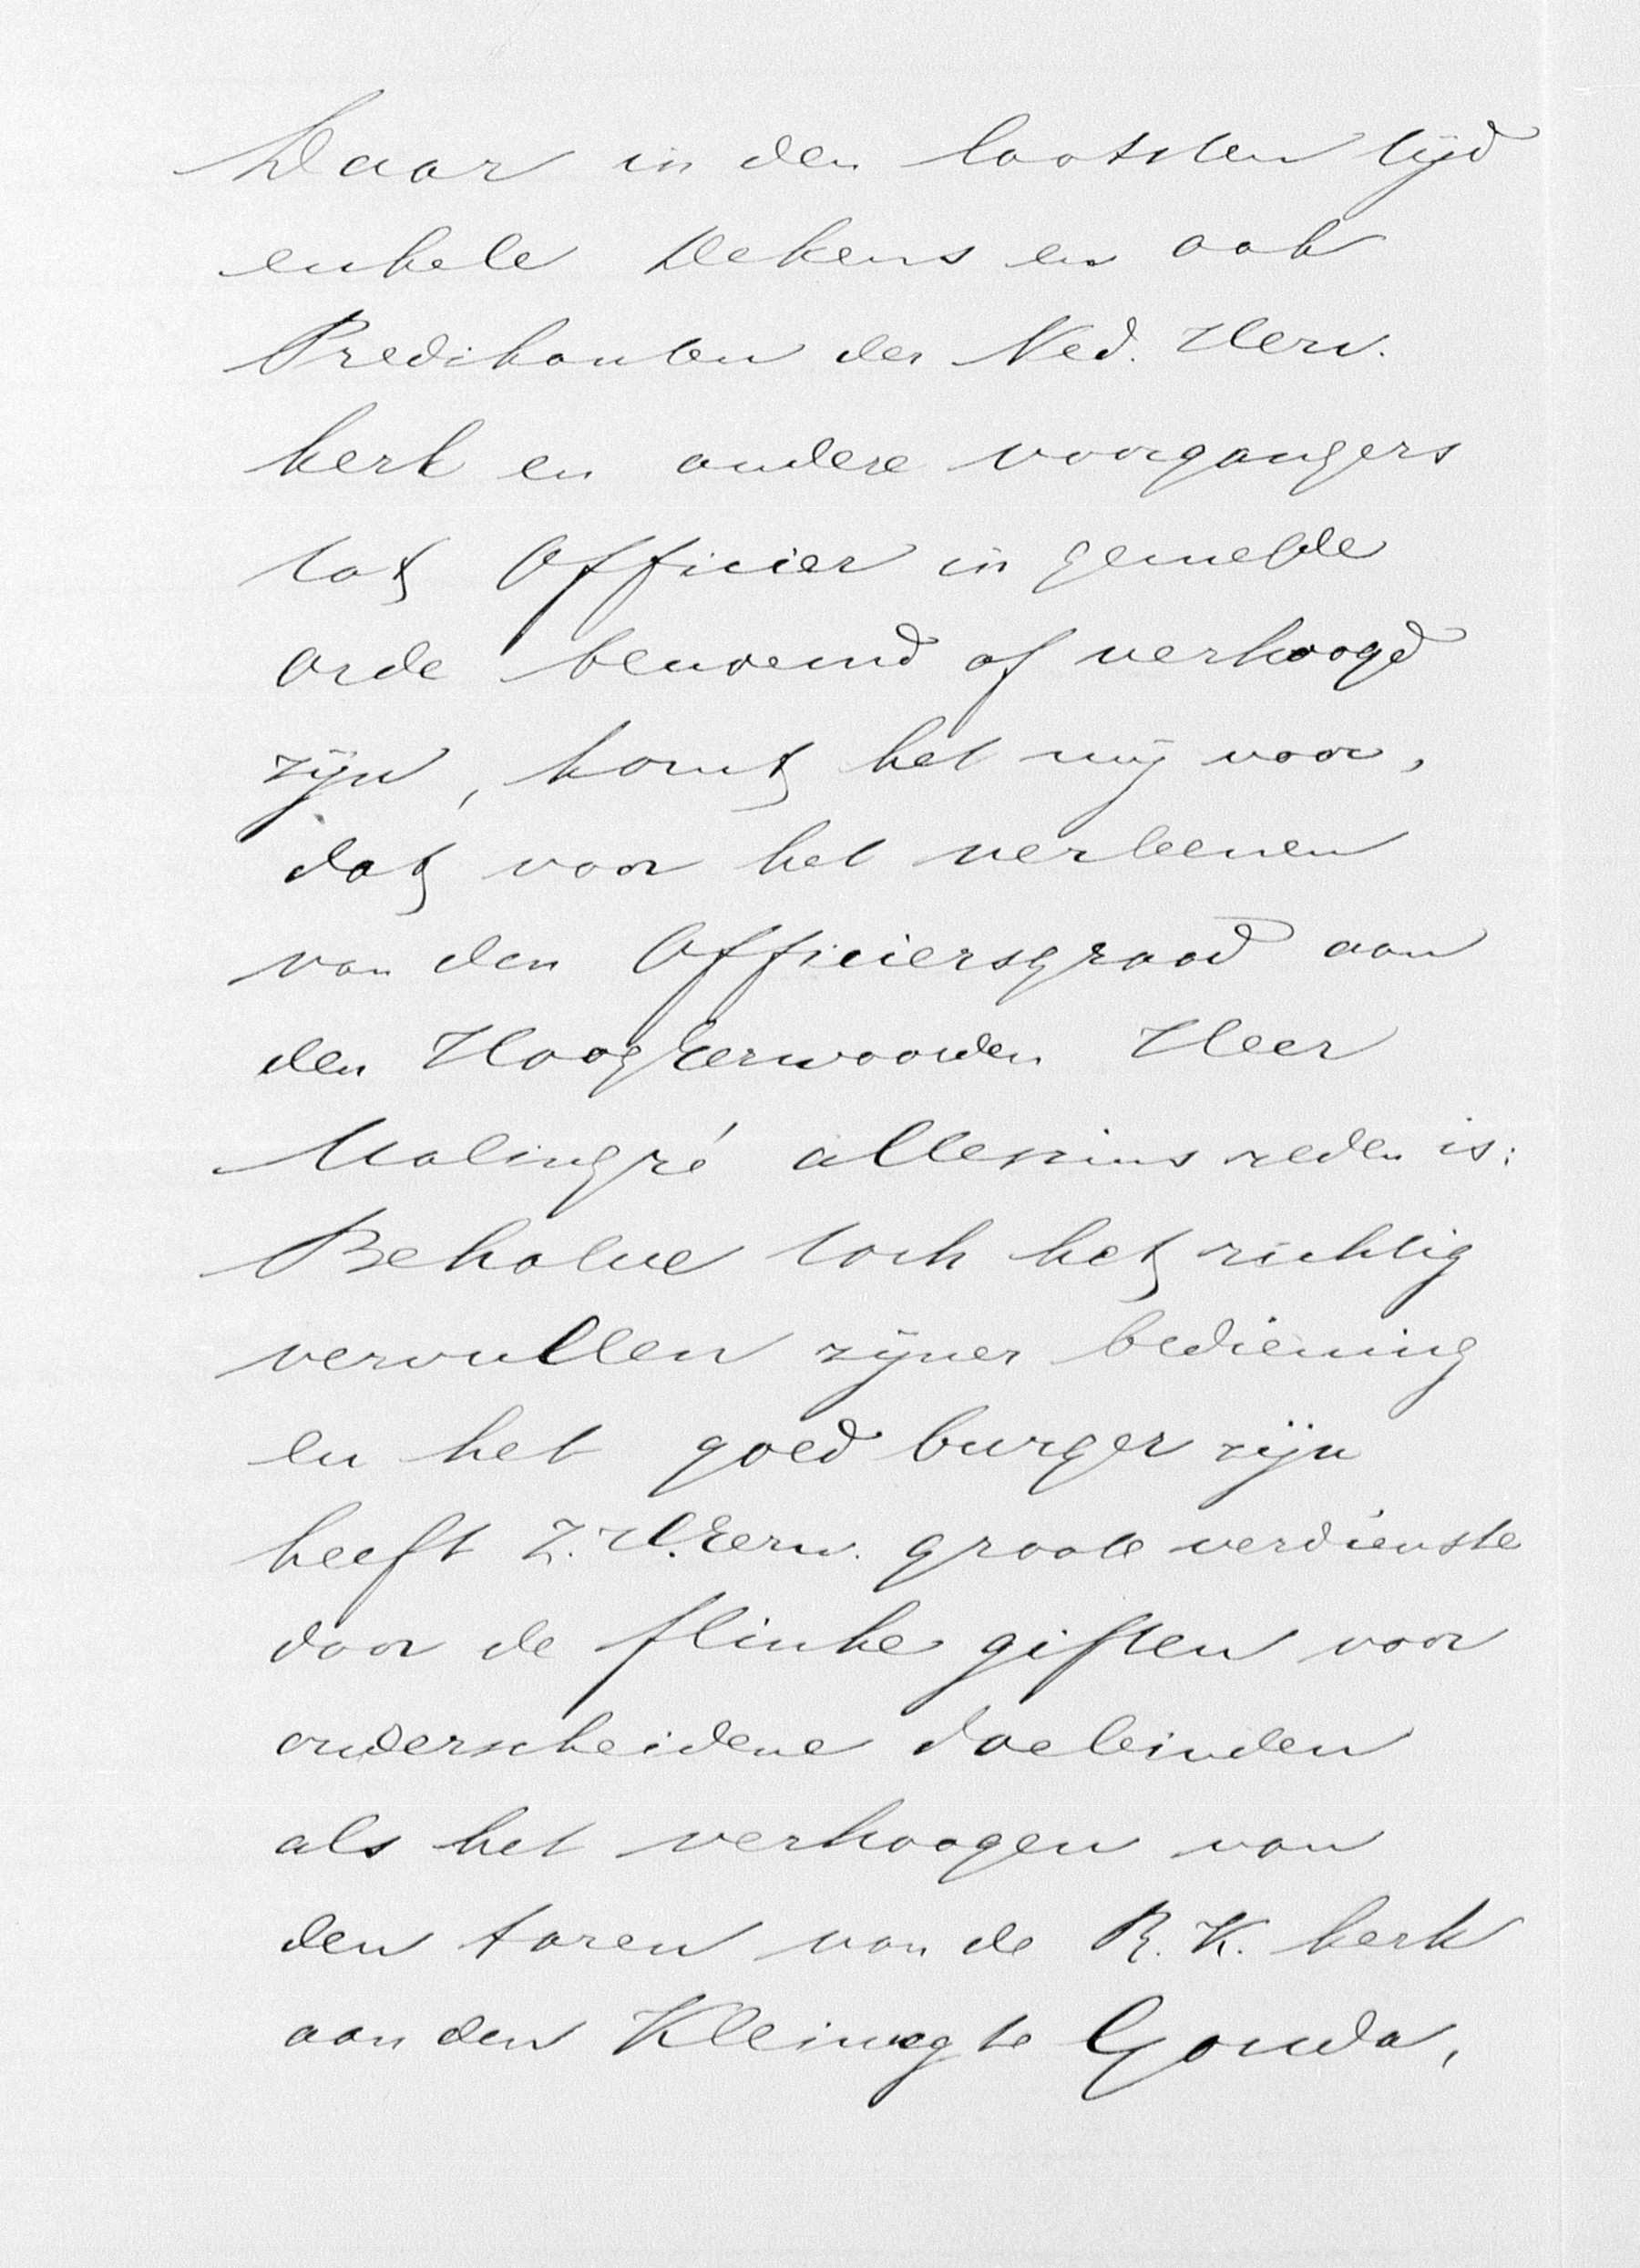 Daar in den laatsten tijd
enkele Dekens en ook
Predikanten der Ned. Herv.
kerk en andere voorgangers
tot Officier in gemelde
orde benoemd of verhoogd
zijn, komt het mij voor,
dat voor het verleenen
van den Officiersgraad aan
den HoogEerwaarden Heer
Malingré alleszins reden is:
Behalve toch het richtig
vervullen zijner bediening
en het goed burger zijn
heeft Z.H.Eerw. groote verdienste
door de flinke giften voor
onderscheidene doeleinden
als het verhoogen van
den toren van de R.K. kerk
aan den Kleiweg te Gouda,